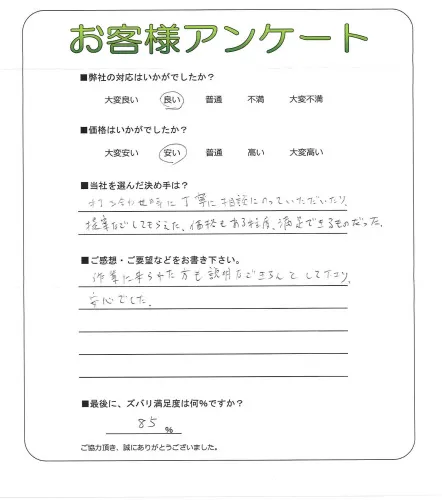 お客様アンケート
■弊社の対応はいかがでしたか？
大変良い 良い 普通 不満 大変不満
■価格はいかがでしたか？
大変安い 安い 普通 高い 大変高い
■当社を選んだ決め手は？
打ち合わせ時に丁寧に相談にのっていただいたり、
提案などしてもらえた。価格もある程度、満足できるものだった。
■ご感想・ご要望などをお書き下さい。
作業に来られた方も説明などきちんとして下さり、
安心でした。
■最後に、ズバリ満足度は何％ですか？
85 %
ご協力頂き、誠にありがとうございました。